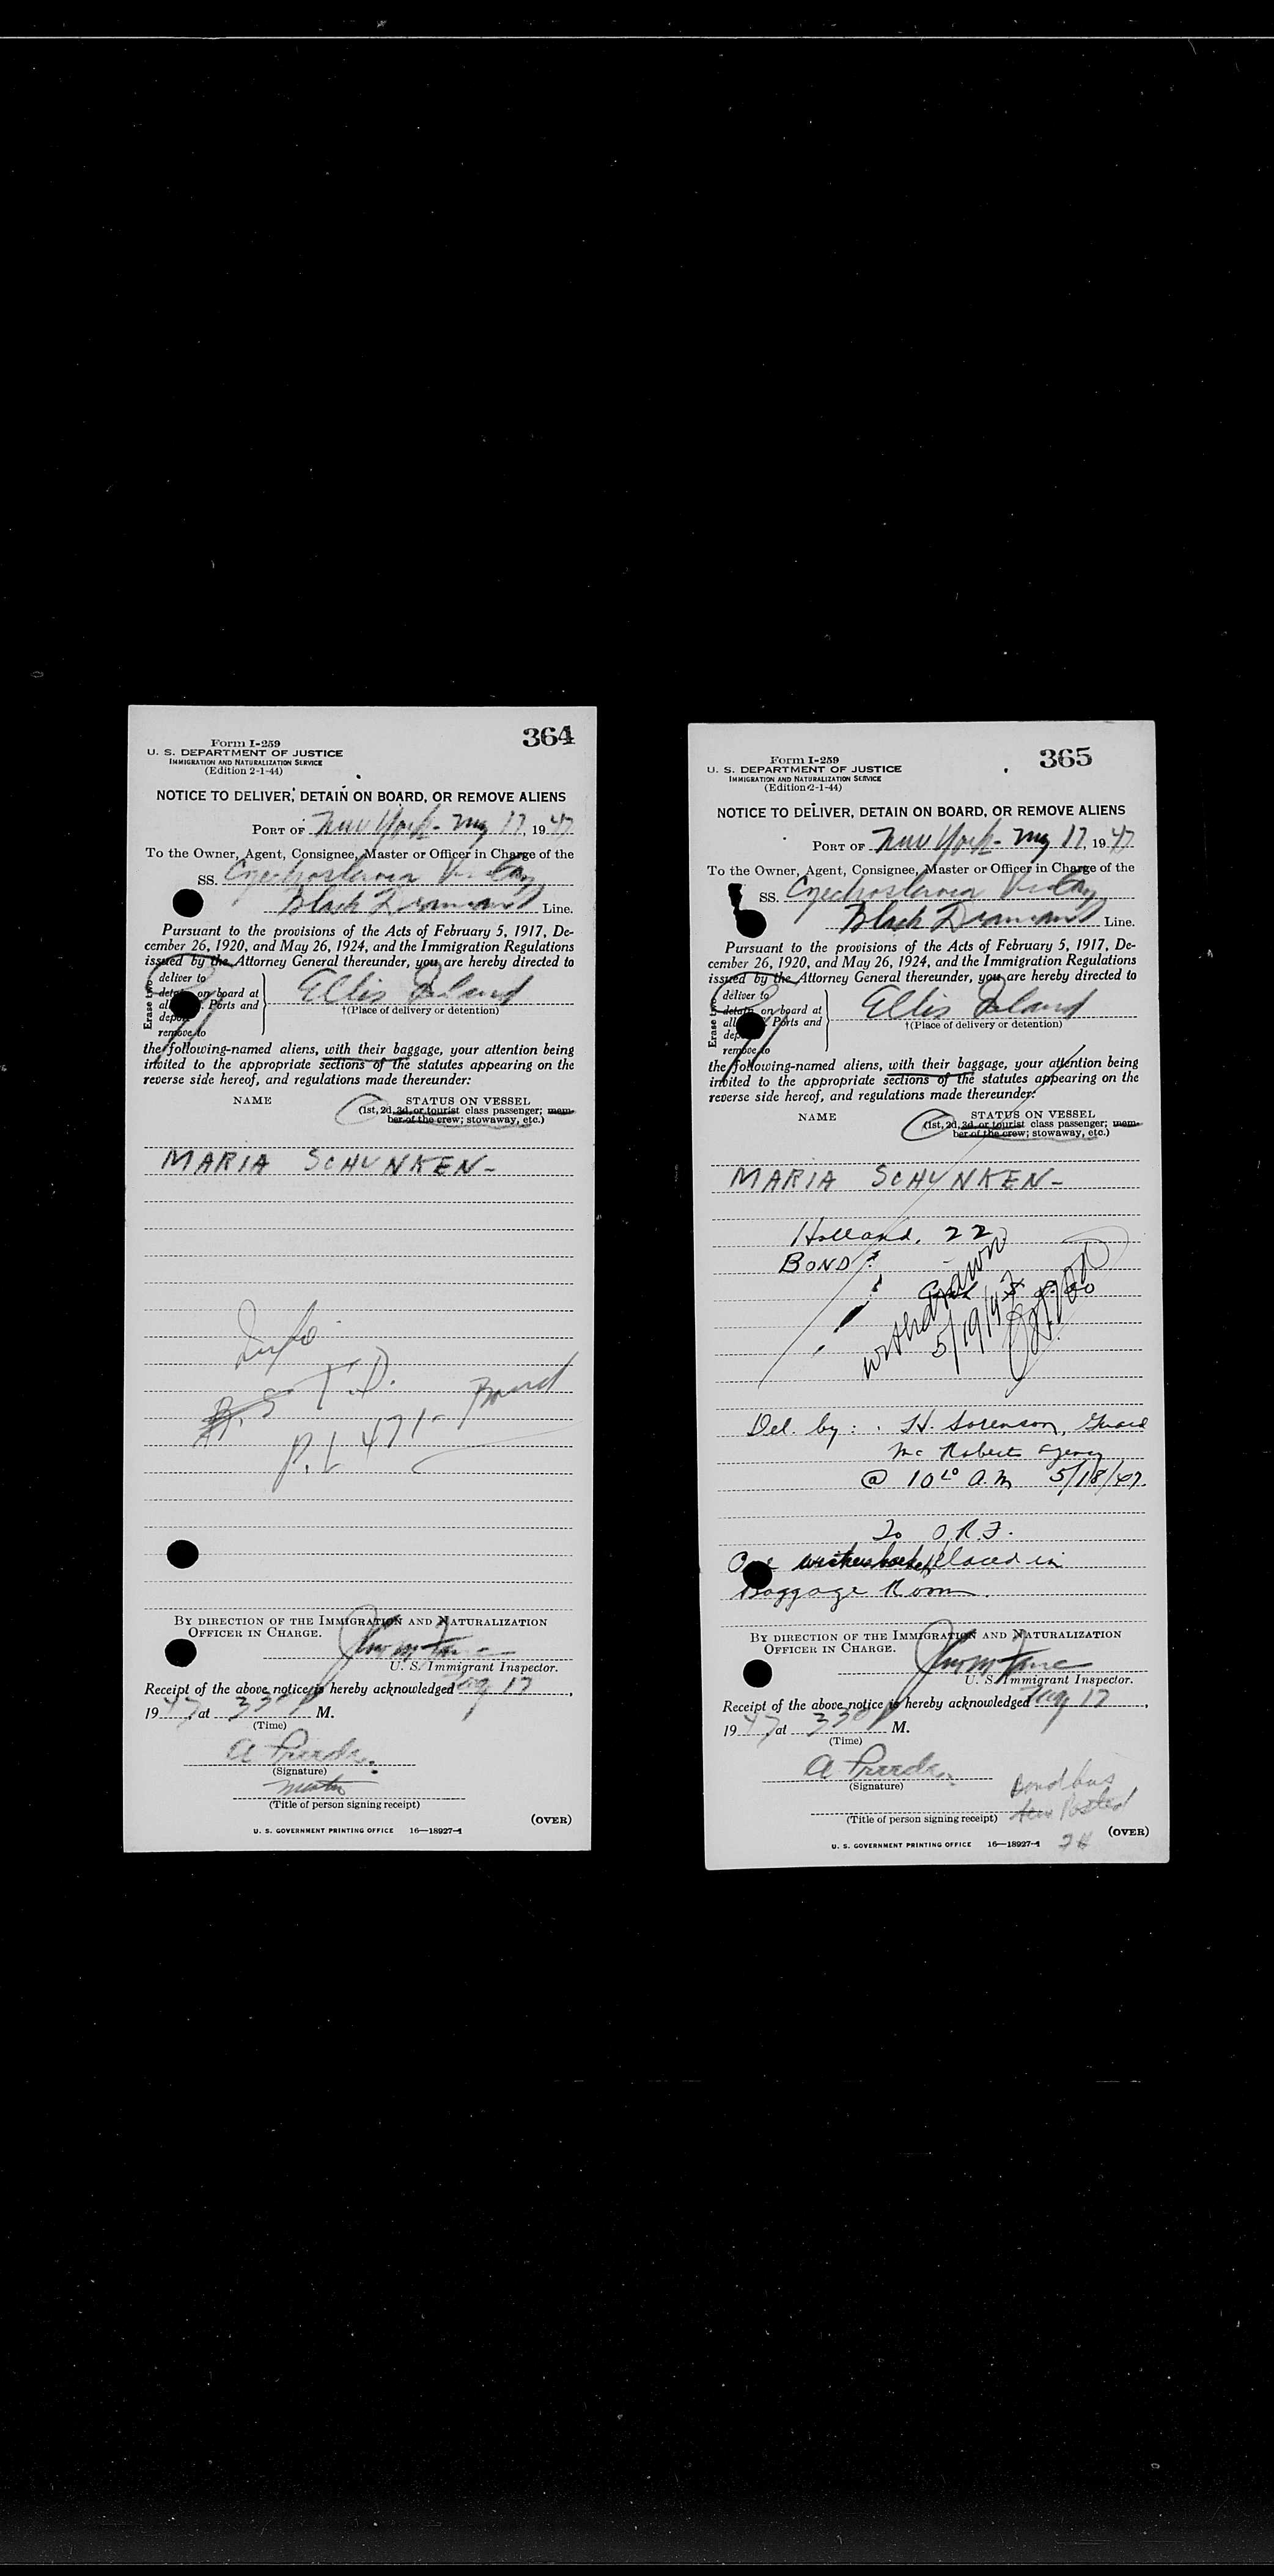 364
Form I-259
U. S. DEPARTMENT OF JUSTICE
IMMIGRATION AND NATURALIZATION SERVICE
(Edition 2-1-44)
NOTICE TO DELIVER, DETAIN ON BOARD, OR REMOVE ALIENS
PORT OF New York - May 17, 1947
To the Owner, Agent, Consignee, Master or Officer in Charge of the
SS. Czechoslovakia Victory
Black Diamond Line.
Pursuant to the provisions of the Acts of February 5, 1917, De-
cember 26, 1920, and May 26, 1924, and the Immigration Regulations
issued by the Attorney General thereunder, you are hereby directed to
Erase two
deliver to
detain on board at
all Ports and
remove to
Ellis Island
†(Place of delivery or detention)
the following-named aliens, with their baggage, your attention being
invited to the appropriate sections of the statutes appearing on the
reverse side hereof, and regulations made thereunder:
NAME
STATUS ON VESSEL
(1st, 2d, 3d, or tourist class passenger; mem-
ber of the crew; stowaway, etc.)
MARIA SCHUNKEN-
T.D.
P.L 471- Bond
BY DIRECTION OF THE IMMIGRATION AND NATURALIZATION
OFFICER IN CHARGE.
U. S. Immigrant Inspector.
Receipt of the above notice is hereby acknowledged May 17,
1947 at 3 30 P M.
(Time)
(Signature)
Master
(Title of person signing receipt)
(OVER)
U. S. GOVERNMENT PRINTING OFFICE 16—18927-1
365
Form I-259
U. S. DEPARTMENT OF JUSTICE
IMMIGRATION AND NATURALIZATION SERVICE
(Edition 2-1-44)
NOTICE TO DELIVER, DETAIN ON BOARD, OR REMOVE ALIENS
PORT OF New York - May 17, 1947
To the Owner, Agent, Consignee, Master or Officer in Charge of the
SS. Czechoslovakia Victory
Black Diamond Line.
Pursuant to the provisions of the Acts of February 5, 1917, De-
cember 26, 1920, and May 26, 1924, and the Immigration Regulations
issued by the Attorney General thereunder, you are hereby directed to
Erase two
deliver to
detain on board at
all Ports and
remove to
Ellis Island
†(Place of delivery or detention)
the following-named aliens, with their baggage, your attention being
invited to the appropriate sections of the statutes appearing on the
reverse side hereof, and regulations made thereunder:
NAME
STATUS ON VESSEL
(1st, 2d, 3d, or tourist class passenger; mem-
ber of the crew; stowaway, etc.)
MARIA SCHUNKEN-
Holland, 22
BOND
withdrawn
5/19/47
Del. by: H. Sorenson, Guard
Mc Roberts Agency
@ 10 10 A.M 5/18/47.
To O.R.F.
One wicker basket Placed in
Baggage Room.
BY DIRECTION OF THE IMMIGRATION AND NATURALIZATION
OFFICER IN CHARGE.
U. S. Immigrant Inspector.
Receipt of the above notice is hereby acknowledged May 17,
1947, at 3 30 P M.
(Time)
(Signature)
Bond has
been Posted
(Title of person signing receipt)
(OVER)
U. S. GOVERNMENT PRINTING OFFICE 16—18927-1